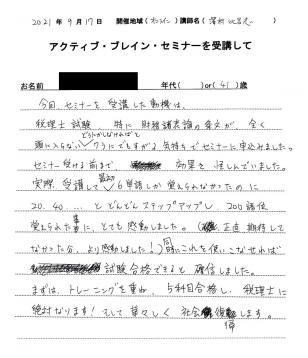 2021年9月17日　開催地域(オンライン)講師名(澤村　　　)
アクティブ・ブレイン・セミナーを受講して
お名前　年代(　)or(41)歳
今回、セミナーを受講した動機は、
税理士試験、特に財務諸表論の条文が、全く
頭に入らない どうにかしなければと ワラにでもすがる気持ちでセミナーに申込みました。
セミナー受ける前まで、効果を怪しんでいました。
実際受講して 最初 6単語しか覚えられなかったのに
20、40、… とどんどんステップアップし、200語位
覚えられた事に、とても感動しました。(正直期待して
なかった分、より感動しました!)同時にこれを使いこなせれば
試験合格できると確信しました。
まずは、トレーニングを重ね、5科目合格し、税理士に
絶対なります! そして華々しく社会復帰します。